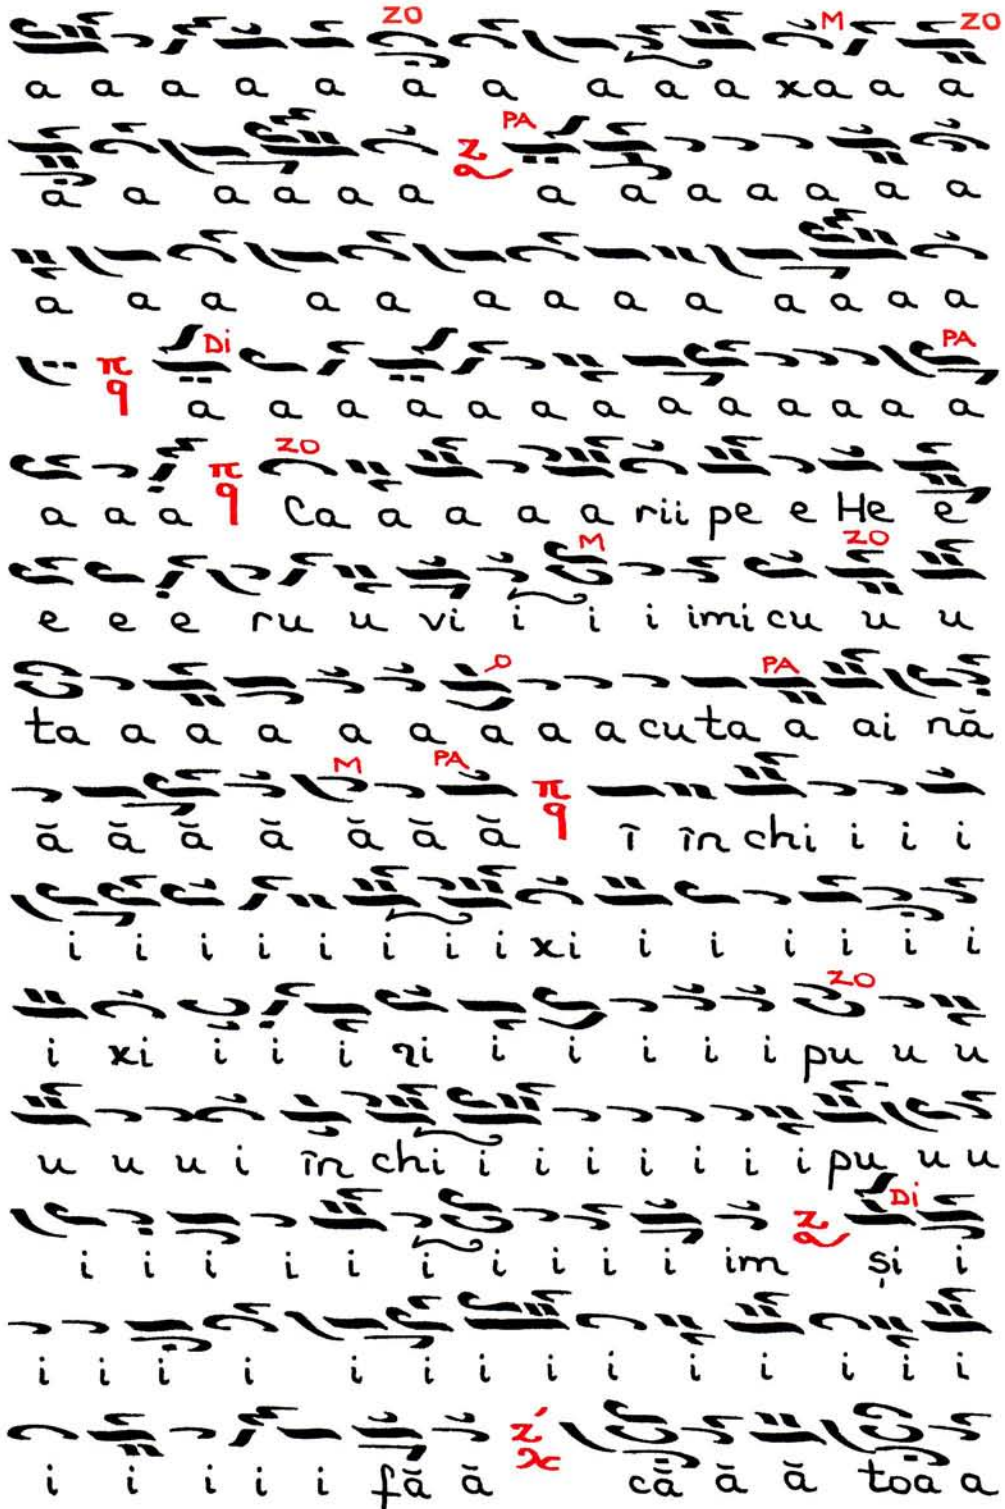 ZO M ZO
a a a a a a a a a a xa a a
PA
a a a a a a a a a a a a a
a a a a a a a a a a a a a
Di PA
π q
a a a a a a a a a a a a a
ZO
a a a π q Ca a a a a rii pe e He e
M ZO
e e e ru u vi i i i imi cu u u
PA
ta a a a a a a a a cu ta a ai nă
M PA
ă ă ă ă ă ă ă π q î în chi i i i
i i i i i i i i xi i i i i i i
ZO
i xi i i i i i i i i pu u u
u u u i în chi i i i i i i i pu u u
Di
i i i i i i i i i i im și i
i i i i i i i i i i i i i
i i i i i fă ă că ă ă toa a